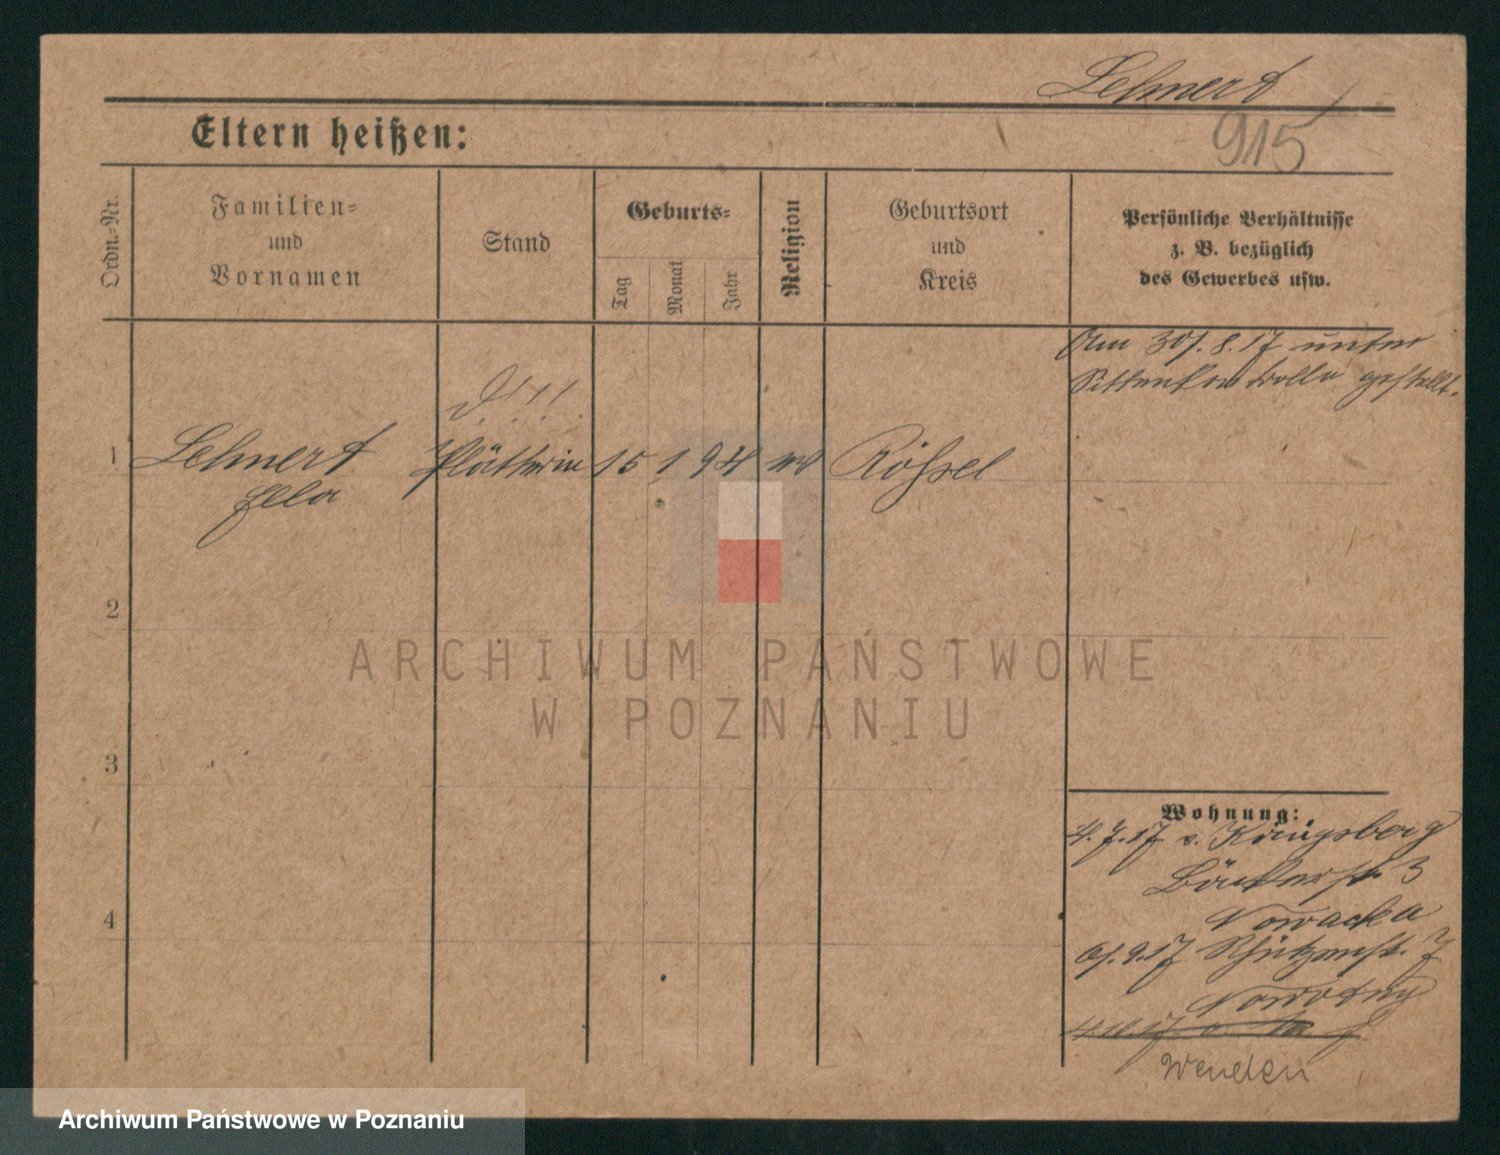 Lehnert
915
Eltern heißen:
Ordn.-Nr.
Familien-
und
Vornamen
Stand
Geburts-
Tag
Monat
Jahr
Religion
Geburtsort
und
Kreis
Persönliche Verhältnisse
z. B. bezüglich
des Gewerbes usw.
Am 30/.8.17 unter
Sittenkontrolle gestellt.
1 Lehnert Plätterin 15 1 94 Rößel
Ella
2
3
4
Wohnung:
4.7.17 v. Königsberg
Bäckerstr. 3
Nowacka
6/.9.17 Schützenstr. 7
Nowotny
4.10.17
Wenden
ARCHIWUM PAŃSTWOWE
W POZNANIU
Archiwum Państwowe w Poznaniu